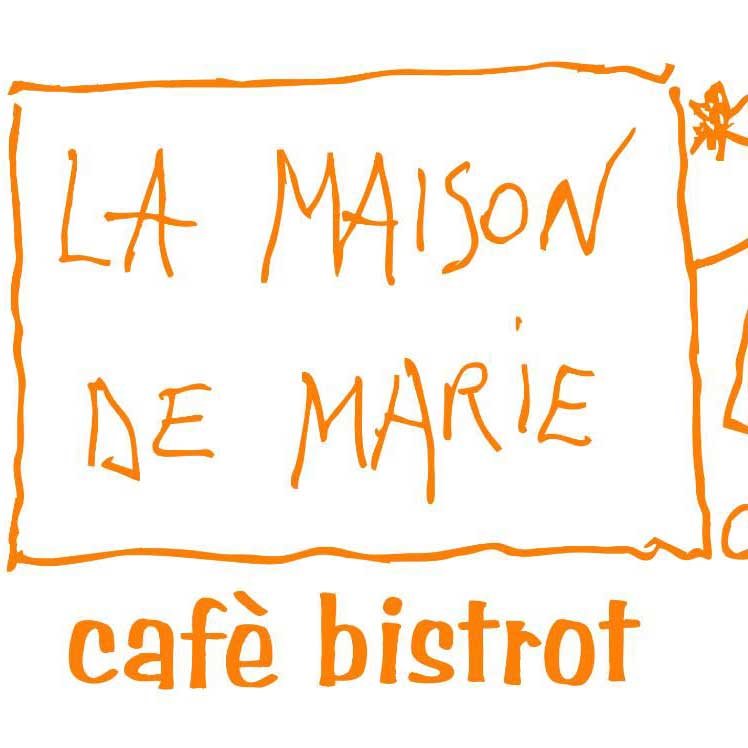 LA MAISON
DE MARiE
cafè bistrot